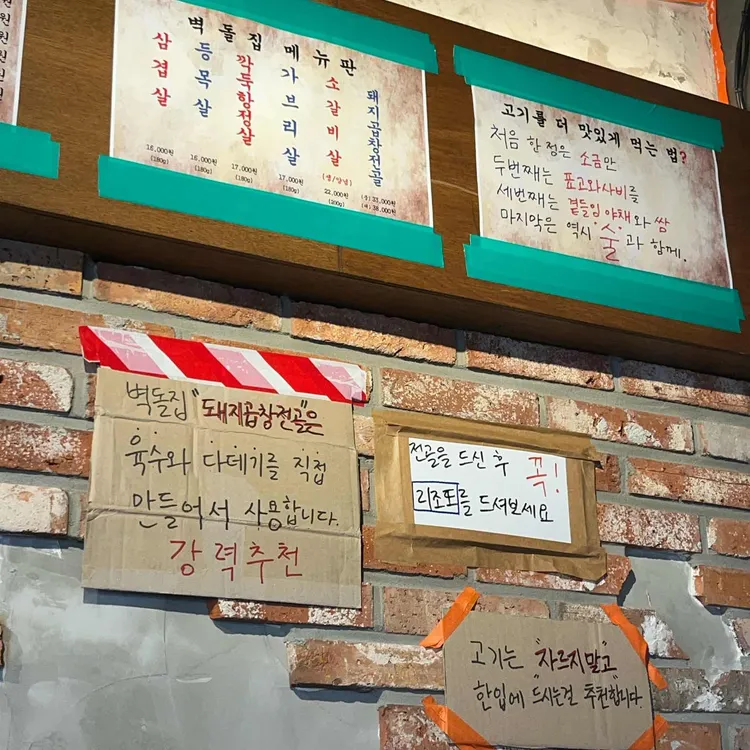 원
원
원
원
벽돌집 메뉴판
삼겹살
16,000원
(180g)
등목살
16,000원
(180g)
깍둑항정살
17,000원
(180g)
가브리살
17,000원
(180g)
소갈비살
(생/양념)
22,000원
(200g)
돼지곱창전골
(중) 23,000원
38,000원
고기를 더 맛있게 먹는 법?
처음 한 점은 소금만
두번째는 표고와사비를
세번째는 곁들임 야채와 쌈
마지막은 역시 술과 함께.
벽돌집 "돼지곱창전골"은
육수와 다데기를 직접
만들어서 사용합니다.
강력추천
전골을 드신 후 꼭!
리조또를 드셔보세요
고기는 "자르지말고"
한입에 "드시는걸 추천"합니다.